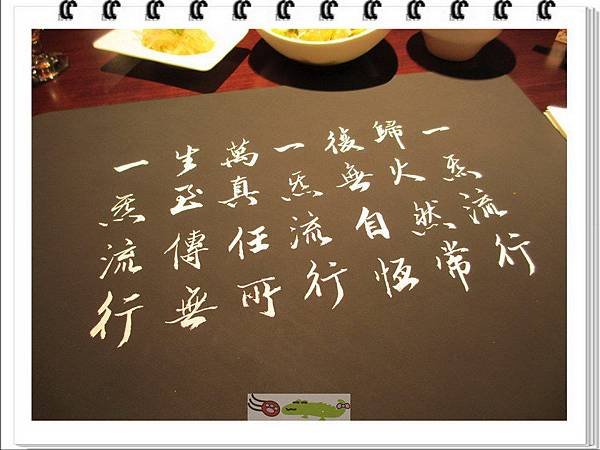 一炁流行
歸火然常
復無自恆
一炁流行
萬真任所
生至傳無
一炁流行